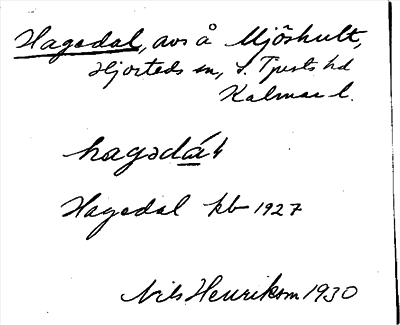 Hagedal, avs å Mjöshult,
Hjorteds sn, S. Tjusts hd
Kalmar l.
hagədá̱l
Hagedal kb 1927
Nils Henrikson 1930